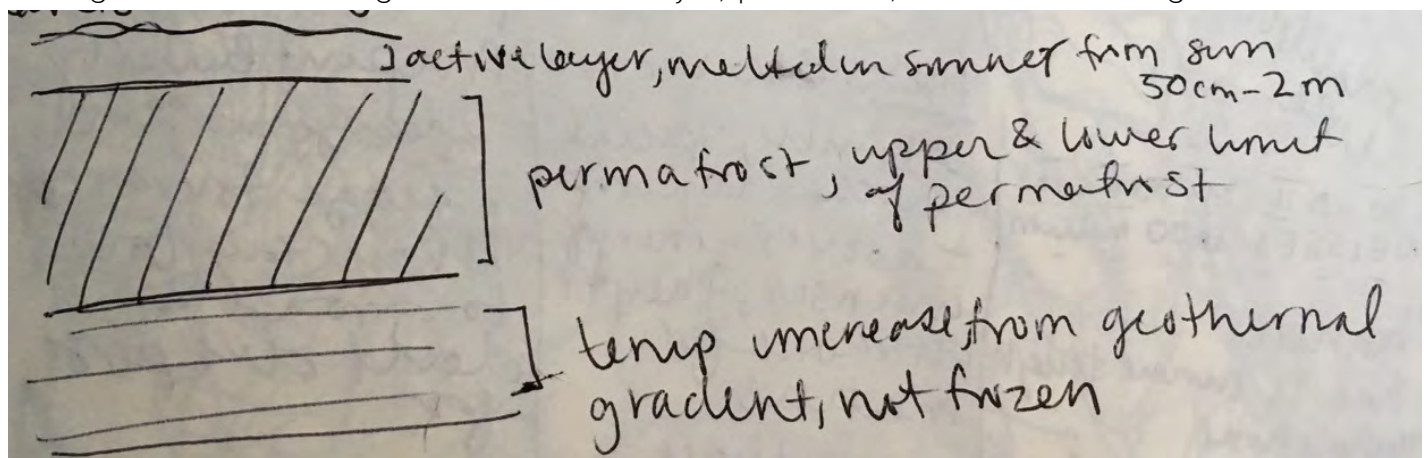 active layer, melted in summer from sun
50cm-2m
permafrost, upper & lower limit
of permafrost
temp increase, from geothermal
gradient, not frozen